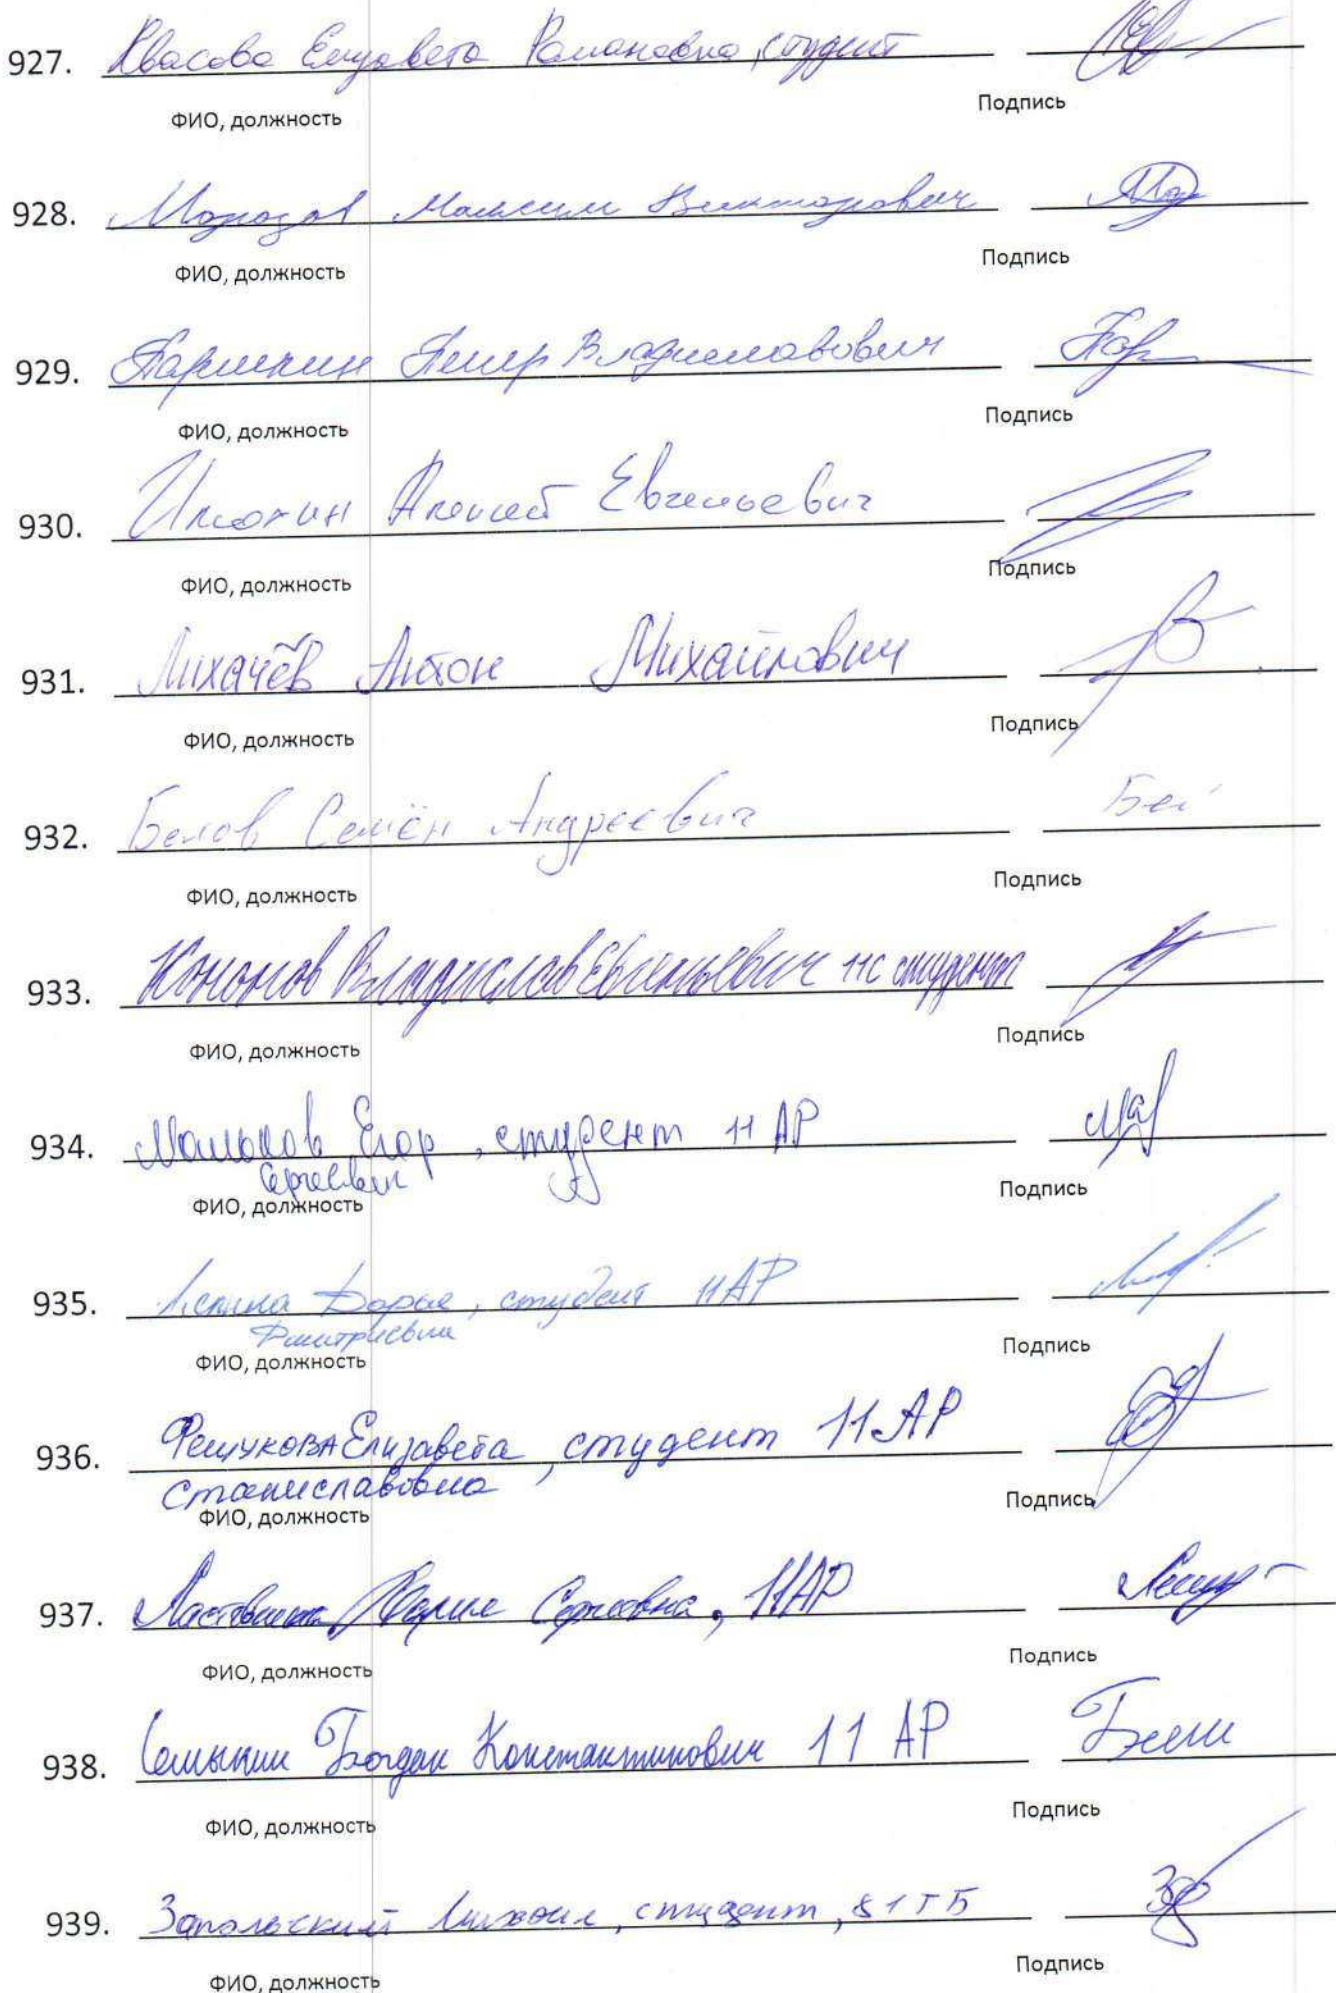 927. Квасова Елизавета Романовна, студент
ФИО, должность Подпись
928. Морозов Максим Викторович
ФИО, должность Подпись
929. Паршкин Пётр Владиславович
ФИО, должность Подпись
930. Алексей Евгеньевич
ФИО, должность Подпись
931. Лихачёв Антон Михайлович
ФИО, должность Подпись
932. Белов Семён Андреевич Бел
ФИО, должность Подпись
933. Кононов Владислав Евгеньевич 11С студент
ФИО, должность Подпись
934. Егор, студент 11 АР
Сергеевич
ФИО, должность Подпись
935. Дарья, студент 11АР
Дмитриевна
ФИО, должность Подпись
936. Фещукова Елизавета, студент 11 АР
Станиславовна
ФИО, должность Подпись
937. Сергеевна, 11АР
ФИО, должность Подпись
938. Богдан Константинович 11 АР
ФИО, должность Подпись
939. Запольский Михаил, студент, 81ТБ
ФИО, должность Подпись